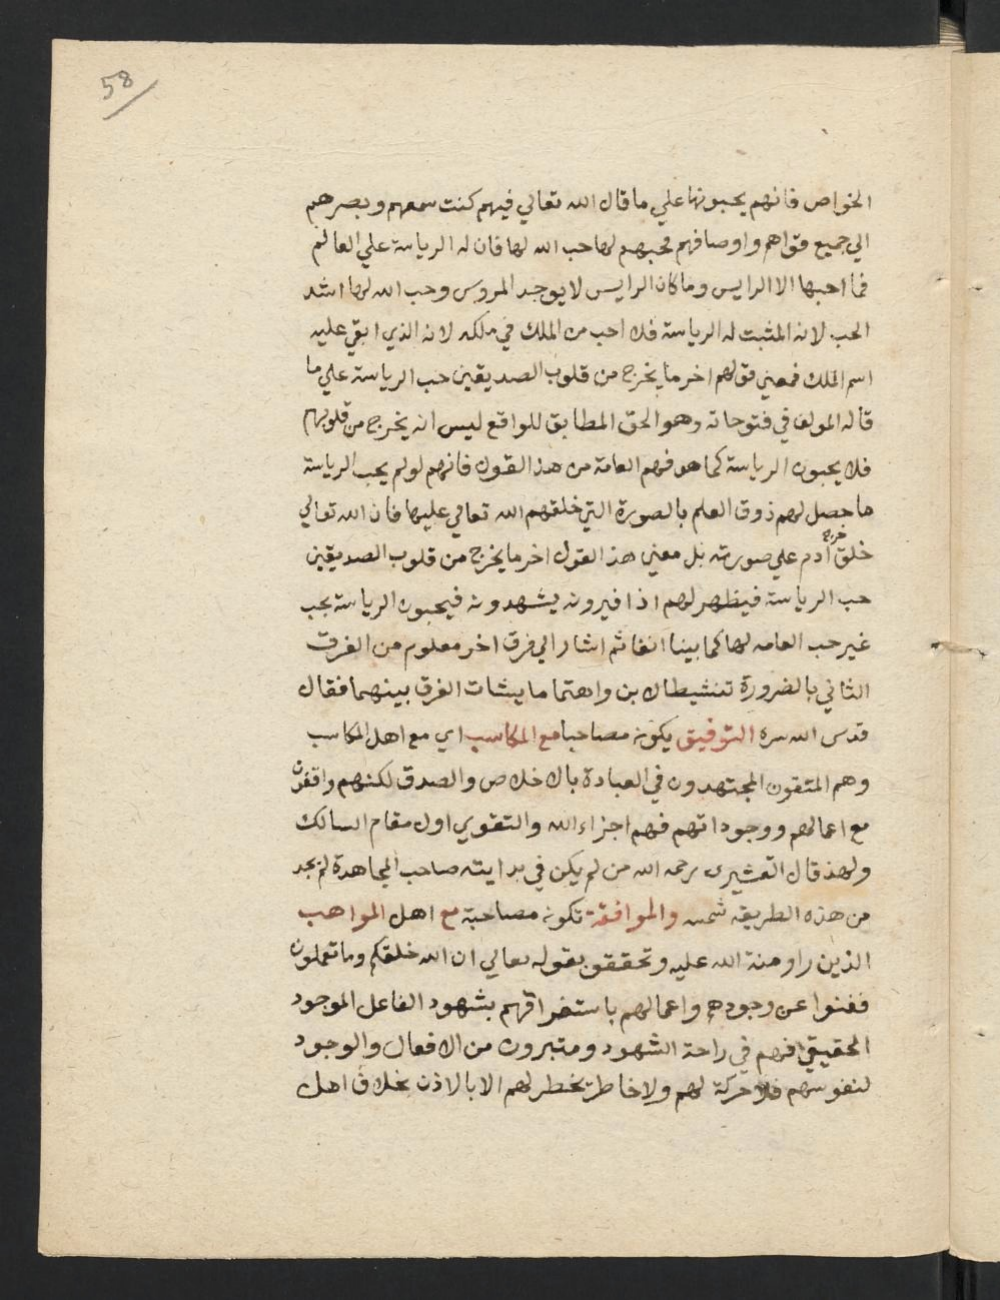 58
الخواص فانهم يحبونها علي ما قال الله تعالي فيهم كنت سمعهم وبصرهم
الي جميع قواهم واوصافهم فحبهم لها حب الله لها فان له الرياسة علي العالم
فما احبها الا الرايس وما كان الرايس لا يوجد المروس وحب الله لها اشد
الحب لانه المثبت له الرياسة فلا احب من الملك في ملكه لانه الذي ابقي عليه
اسم الملك فمعني قولهم اخر ما يخرج من قلوب الصديقين حب الرياسة علي ما
قاله المولف في فتوحاته وهو الحق المطابق للواقع ليس انه يخرج من قلوبهم
فلا يحبون الرياسة كما هو فهم العامة من هذ القول فانهم لو لم يحب الرياسة
ما حصل لهم ذوق العلم بالصورة التي خلقهم الله تعالي عليها فان الله تعالي
خلق آدم علي صورته بل معني هذ القول اخر ما يخرج من قلوب الصديقين
حب الرياسة فيظهر لهم اذا فيرونه يشهدونه فيحبون الرياسة بحب
غير حب العامه لها كما بينا انفا ثم اشار الي فرق اخر معلوم من الفرق
الثاني بالضرورة تنشيطا لابن واهتما ما يشات الفرق بينهما فقال
قدس الله سره التوفيق يكونه مصاحبا مع المكاسب اي مع اهل المكاسب
وهم المتقون المجتهدون في العبادة بالاخلاص والصدق لكنهم واقفون
مع اعمالهم ووجوداتهم فهم اجزاء الله والتقوي اول مقام السالك
ولهذ قال القشيري رحمه الله من لم يكن في بدايته صاحب المجاهدة لم يجد
من هذه الطريقه شمسه والموافقة تكونه مصاحبة مع اهل المواهب
الذين راو منة الله عليه وتحققو بقوله تعالي ان الله خلقكم وما تعملون
ففنوا عن وجودهم واعمالهم باستغراقهم بشهود الفاعل الموجود
الحقيقي فهم في راحة الشهود ومتبرون من الافعال والوجود
لنفوسهم فلا حركة لهم ولا خاطر يخطر لهم الا بالاذن بخلاف اهل